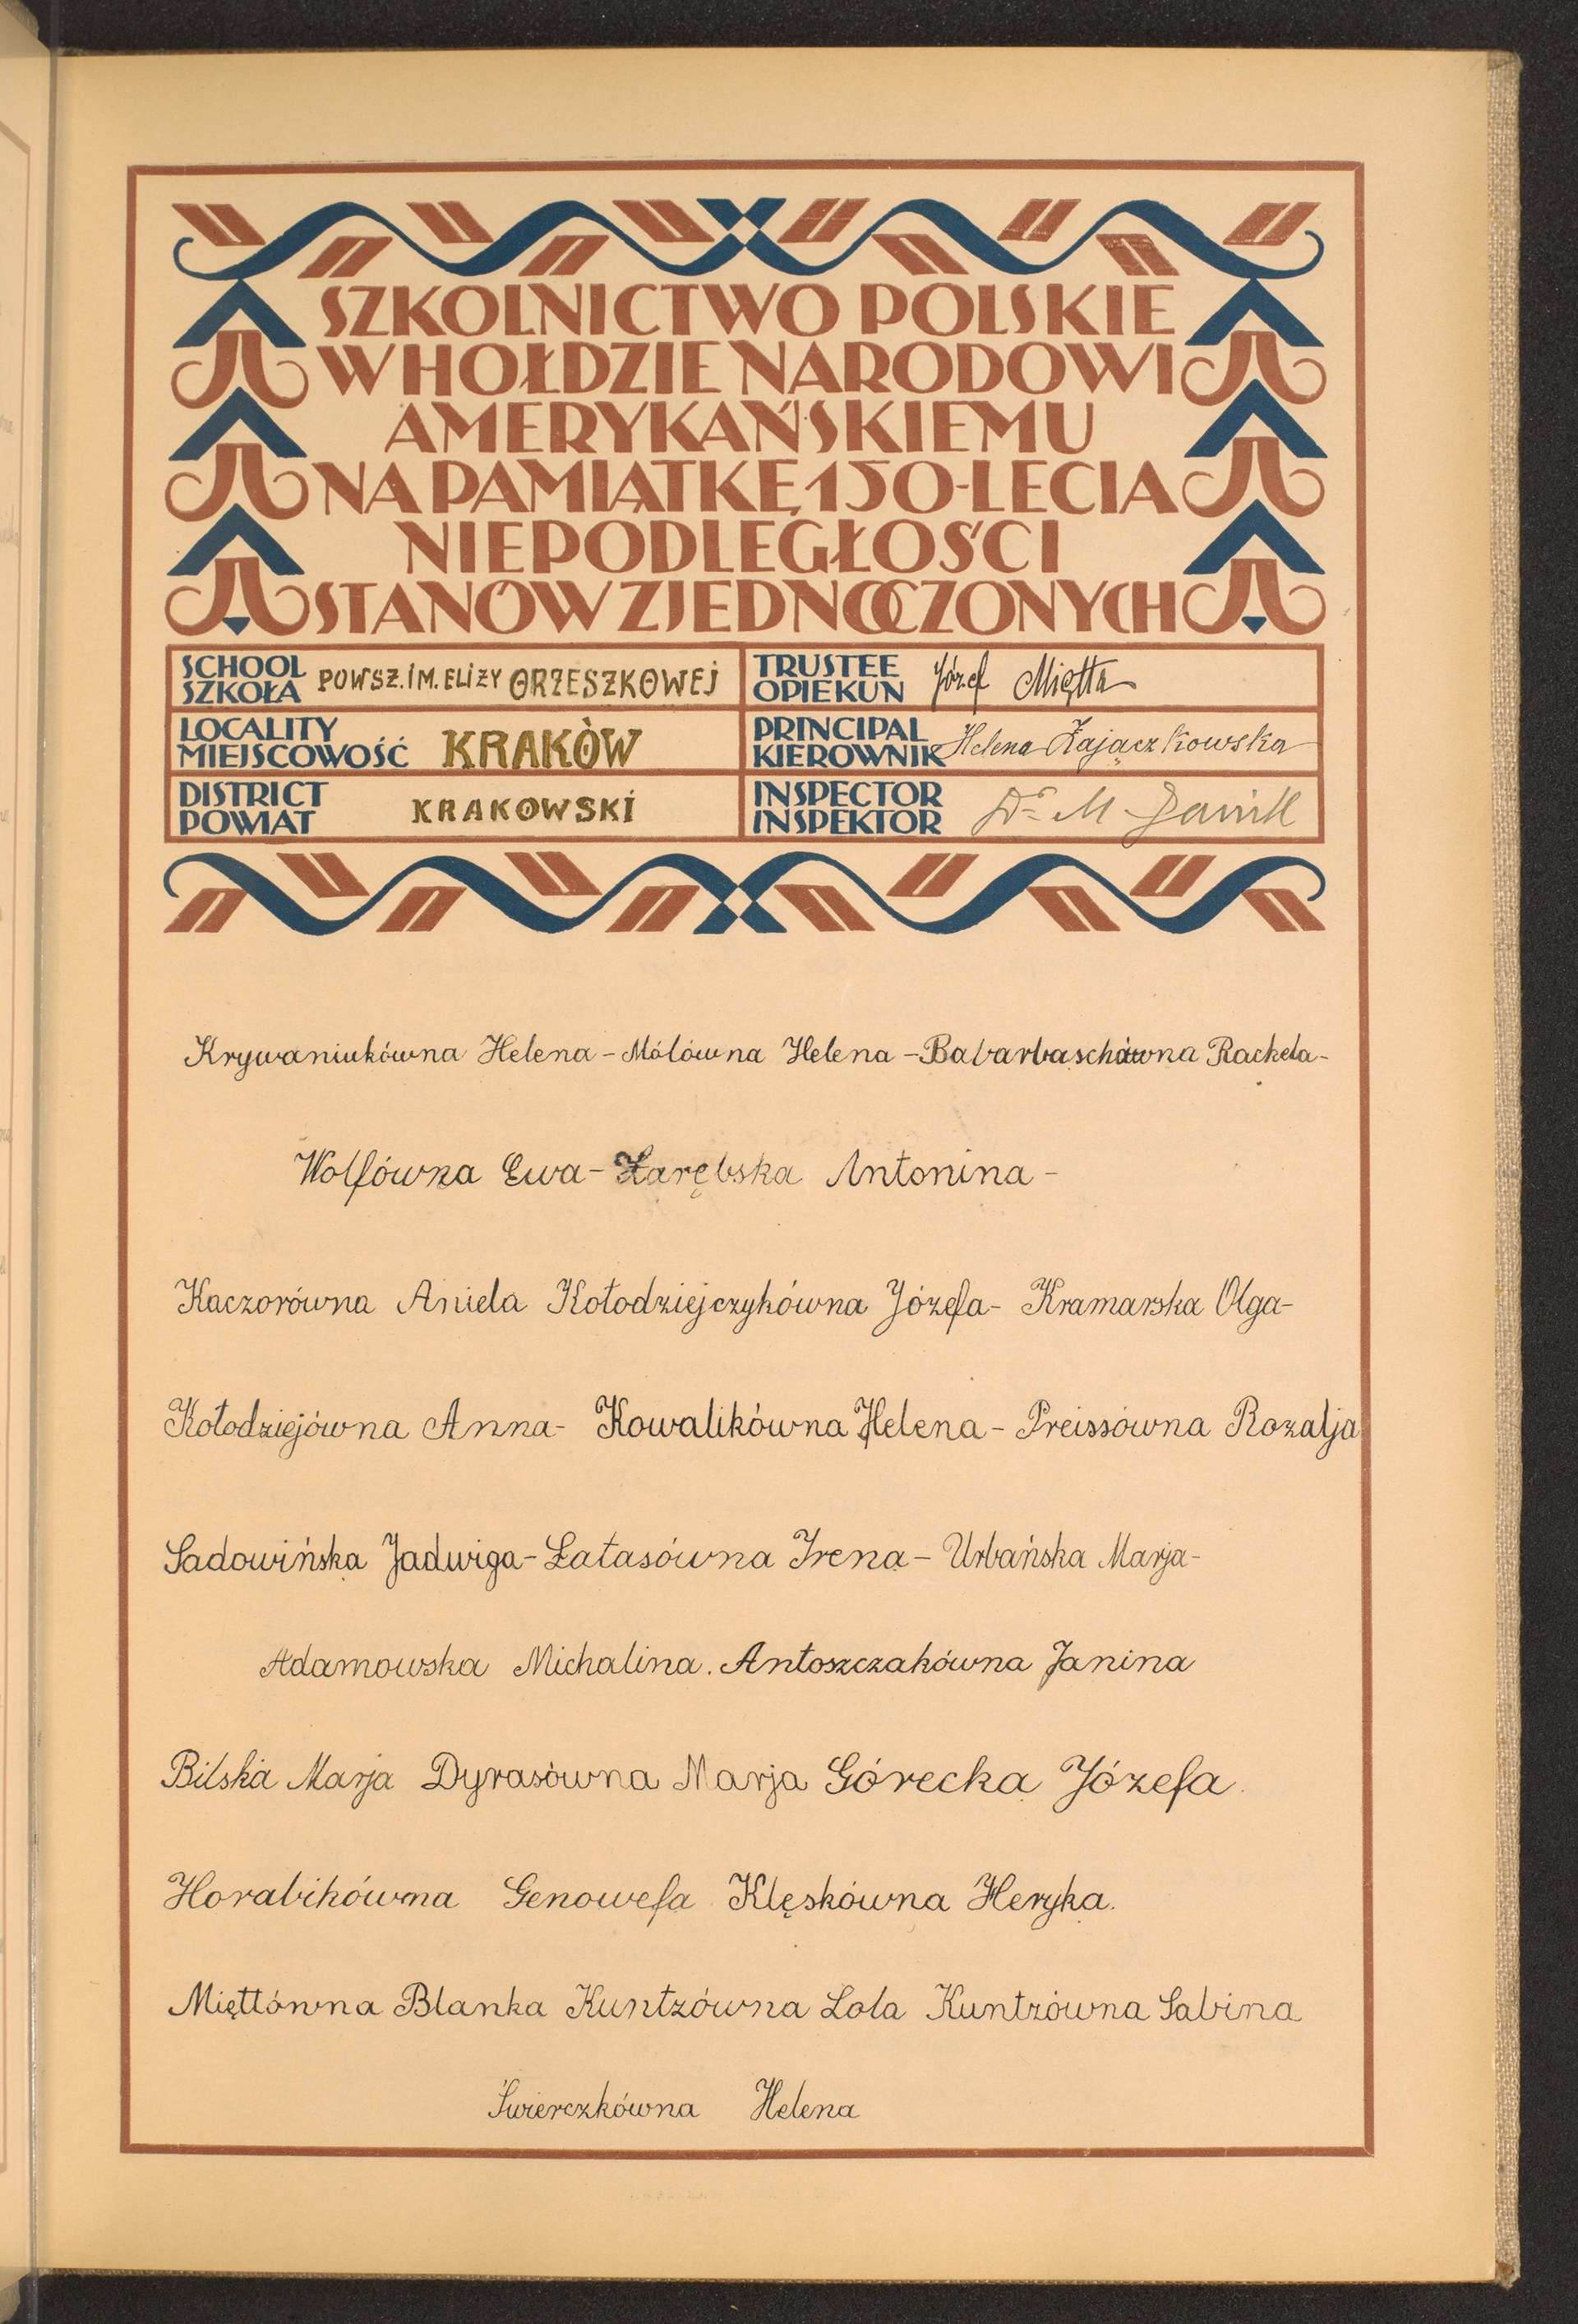 SZKOLNICTWO POLSKIE
W HOŁDZIE NARODOWI
AMERYKAŃSKIEMU
NA PAMIĄTKĘ 150-LECIA
NIEPODLEGŁOŚCI
STANÓW ZJEDNOCZONYCH
SCHOOL
SZKOŁA POWSZ. IM. ELIZY ORZESZKOWEJ
TRUSTEE
OPIEKUN Józef Miętta
LOCALITY
MIEJSCOWOŚĆ KRAKÒW
PRINCIPAL
KIEROWNIK Helena Zajączkowska
DISTRICT
POWIAT KRAKOWSKI
INSPECTOR
INSPEKTOR Dr M
Krywaniukówna Helena - Mólówna Helena - Rachela -
Wolfówna Ewa - Zarębska Antonina -
Kaczorówna Aniela Kołodziejczykówna Józefa - Kramarska Olga -
Kołodziejówna Anna - Kowalikówna Helena - Preissówna Rozalja
Sadowińska Jadwiga - Łatasówna Irena - Urbańska Marja -
Adamowska Michalina. Antoszczakówna Janina
Bilska Marja Dyrasówna Marja Górecka Józefa.
Horabikówna Genowefa Klęskówna Heryka.
Mięttówna Blanka Kuntzówna Lola Kuntzówna Sabina
Świerczkówna Helena